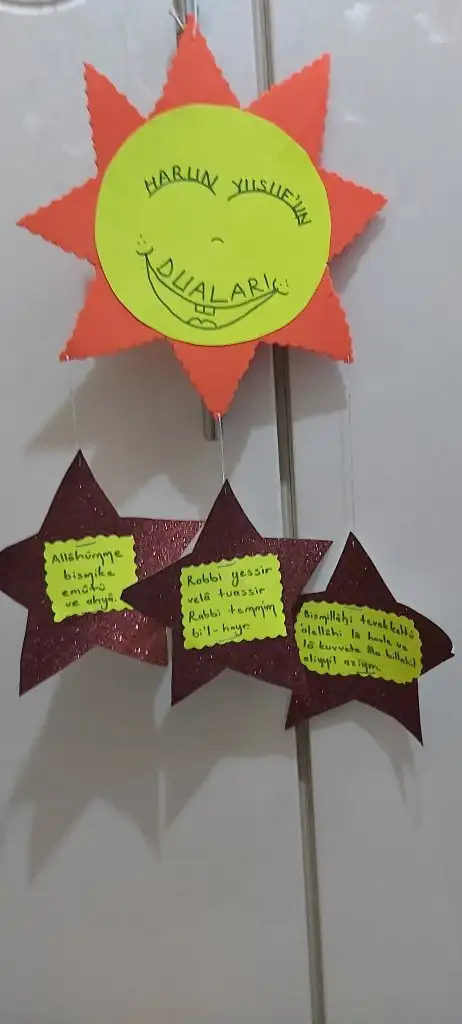 HARUN YUSUF'UN
DUALARI
Allâhümme
bismike
emûtü
ve ahyâ.
Rabbi yessir
velâ tuassir
Rabbi temmim
bi'l-hayr.
Bismillâhi tevekkeltü
alellâhi lâ havle ve
lâ kuvvete illa billahil
aliyyil aziym.